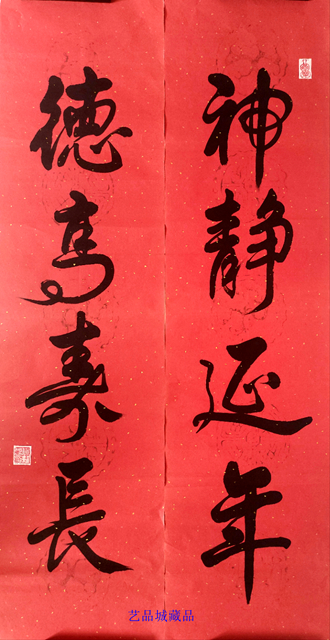 神静延年
德高寿长
艺品城藏品